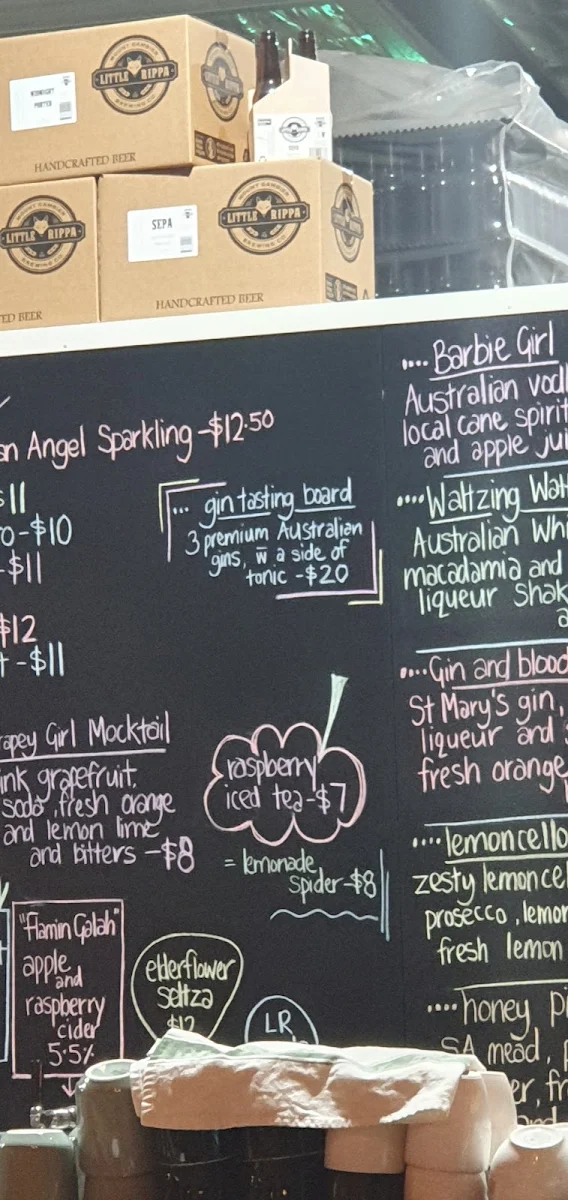 MIDNIGHT
PORTER
MOUNT GAMBIER
LITTLE RIPPA
BREWING CO
HANDCRAFTED BEER
MOUNT GAMBIER
LITTLE RIPPA
BREWING CO
TED BEER
SEPA
MOUNT GAMBIER
LITTLE RIPPA
BREWING CO
HANDCRAFTED BEER
an Angel Sparkling -$12.50
$11
o -$10
-$11
$12
t -$11
.... gin tasting board
3 premium Australian
gins, w̄ a side of
tonic -$20
rapey Girl Mocktail
ink grapefruit,
soda, fresh orange
and lemon lime
and bitters -$8
raspberry
iced tea-$7
= lemonade
Spider-$8
"Flamin Galah"
apple
and
raspberry
cider
5.5%
elderflower
seltza
$12
LR
.... Barbie Girl
Australian vod
local cane spirit
and apple jui
.... Waltzing Wat
Australian Whi
macadamia and
liqueur Shak
a
.... Gin and blood
St Mary's gin,
liqueur and
fresh orange
.... lemoncello
zesty lemoncel
prosecco, lemon
fresh lemon
.... honey pi
SA mead,
er, fr
and